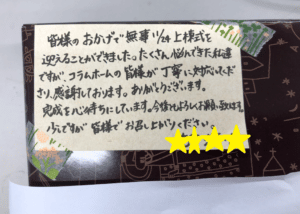 皆様のおかげで無事11/24上棟式を
迎えることができました。たくさん悩んできた私達
ですが、コラムホームの皆様が丁寧に対応してくだ
さり、感謝しております。ありがとうございます。
完成を心待ちにしています。今後もよろしくお願い致します。
ふらですが皆様でお召し上がりください。